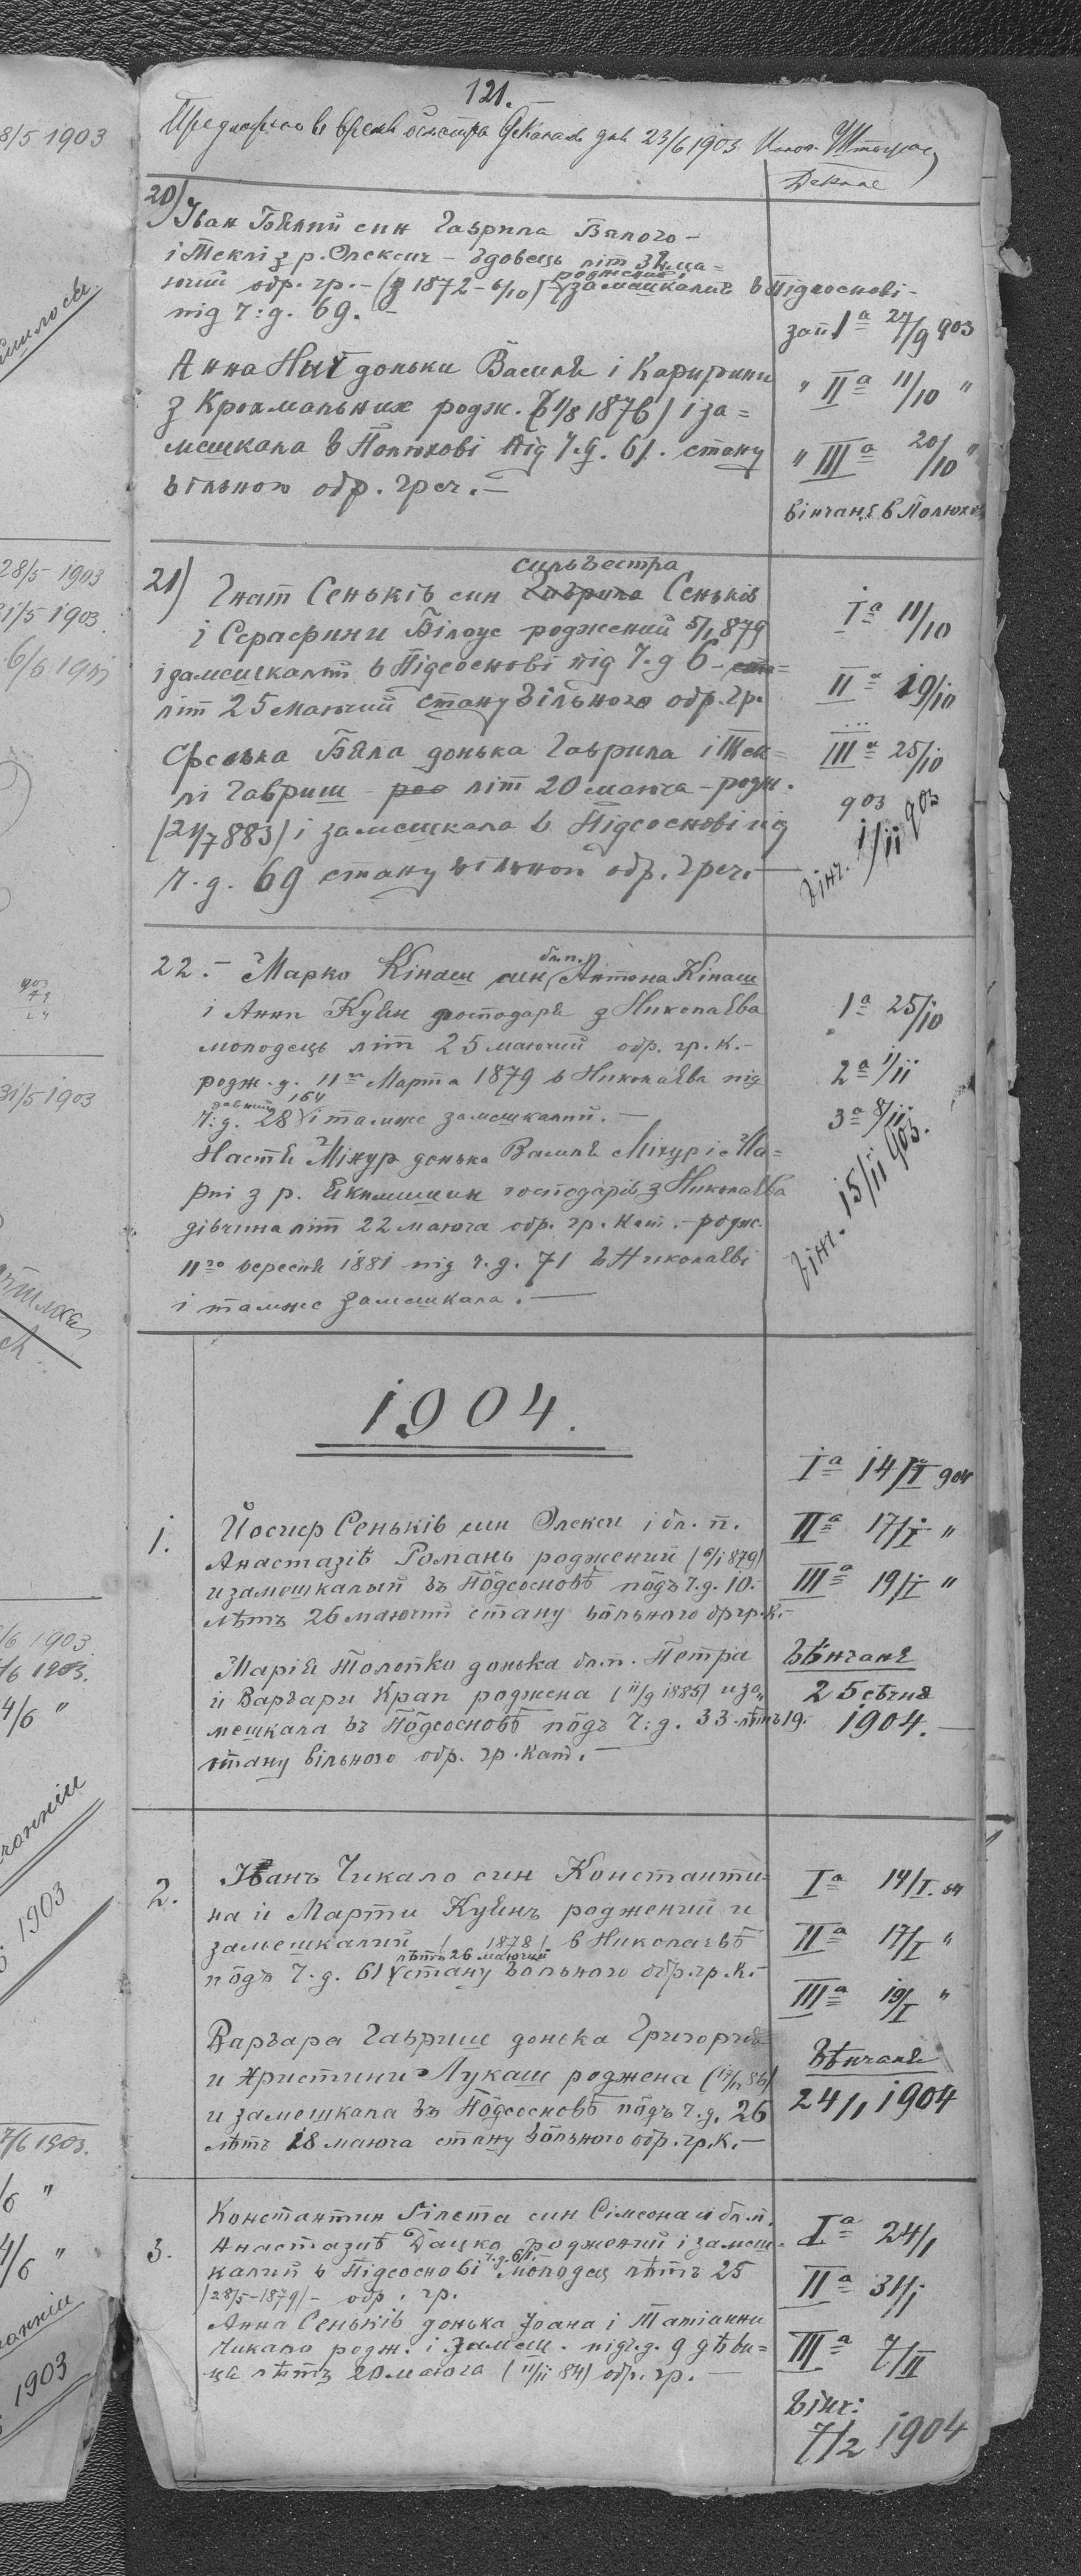 121.
Предложено в время осмотра дня 23/6 1903
20) Іван Бѣлий син Гаврила Бялого –
і Теклі з р. Олексич – вдовець літ 32 ма=
роджений
ючий обр. гр. – (з 1872 – 6/10) – замешкалий в Підсоснові –
під ч: д. 69. –
зап. 1а 27/9 903
Анна Нич доньки Василя і Катерини
" IIа 11/10 "
з Крохмальних родж. (6 1/8 1876) і за=
мешкала в Полюхові під ч. д. 61. стану
" IIIа 20/10 "
вільного обр. греч. –
вінчані в Полюхові
сильвестра
21) Гнат Сеньків син Гаврила Сеньків
Iа 11/10
і Серафини Білоус роджений 5/1 879
і замешкалий в Підсоснові під ч. д 6 –
IIа 19/10
літ 25 маючий стану вільного обр. гр.
Феська Бѣла донька Гаврила і Тек=
IIIа 25/10
лі Гавриш – літ 20 маюча – родж.
903
(24/7 883) і замешкала в Підсоснові під
ч. д. 69 стану вільного обр. греч. –
вінч. 1/11 903
бл. п.
22. – Марко Кінаш син Антона Кінаш
і Анни Куйн господаря з Николаєва
1а 25/10
молодець літ 25 маючий обр. гр. к. –
родж. д. 11го Марта 1879 в Николаєва під
2а 1/11
164
ч: д. 28 і тамже замешкалий. –
3а 8/11
Настя Міхур донька Василя Міхур і Ма=
риі з р. Якимишин господарів з Николаєва
дівчина літ 22 маюча обр. гр. кат. – родж.
вінч. 15/11 903.
11го вересня 1881 під ч. д. 71 в Николаєві
і тамже замешкала. –
1904.
Iа 14/I 904
1. Йосиф Сеньків син Олекси і бл. п.
IIа 17/I "
Анастазіѣ Романь роджений (6/1 879)
и замешкалый въ Подсосновѣ подъ ч. д. 10. –
IIIа 19/I "
лѣтъ 26 маючий стану вольного обр гр. к. –
Марія Толопко донька бл. п. Петра
Вѣнчаня
и Варвари Крап роджена (11/9 1885) и за„
25 сѣчня
мешкала въ Подсосновѣ подъ ч: д. 33 лѣтъ 19.
1904. –
стану вільного обр. гр. кат. –
2. Иванъ Чикало син Константи=
Iа 14/I. 04
на и Марти Куйнъ роджений и
замешкалий / 1878 / в Николаєвѣ
IIа 17/I "
лѣтъ 26 маючий
подъ ч. д. 61 стану вольного обр. гр. к. –
IIIа 19/I "
Варвара Гавриш донька Григорія
Вѣнчаня
и Христини Лукаш роджена (17/12 86)
24/1 1904
и замешкала въ Подсосновѣ подъ ч. д. 26
лѣтъ 18 маюча стану вольного обр. гр. к. –
3. Константин Гілета син Сімеона и бл. п.
Iа 24/1
Анастазіѣ Дацко роджений і замеш=
ч. д. 61.
калий в Підсоснові молодец лѣтъ 25
IIа 31/1
/28/5 – 1879/ – обр. гр.
Анна Сеньків донька Іоана і Татіанни
IIIа 7/II
Чикало родж. і замеш. під ч. д. 9 дѣви=
ца лѣтъ 20 маюча (11/11 84) обр. гр. –
Вінч:
7/2 1904
8/5 1903
28/5 1903
31/5 1903
31/5 1903
1903
1903